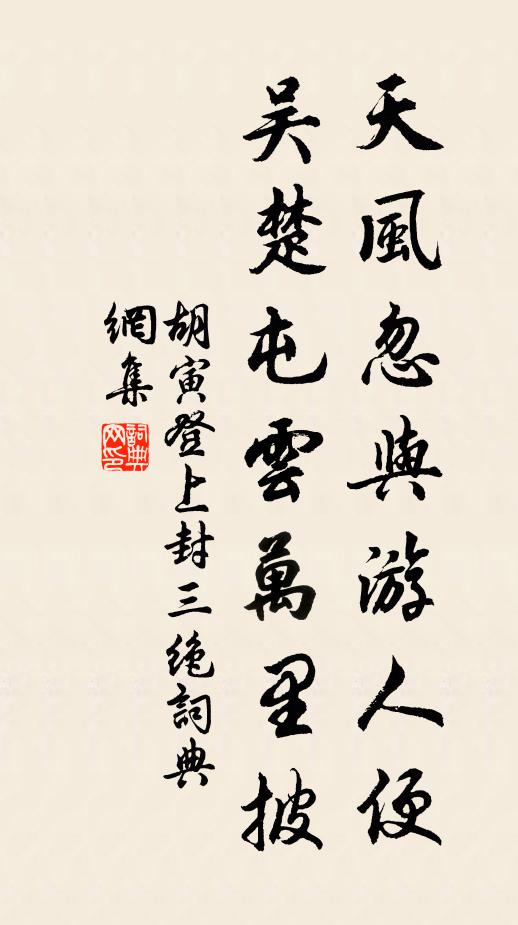 天風忽與游人便
吳楚屯雲萬里披
胡寅登上封三絶詞典
網集
詞典
网印